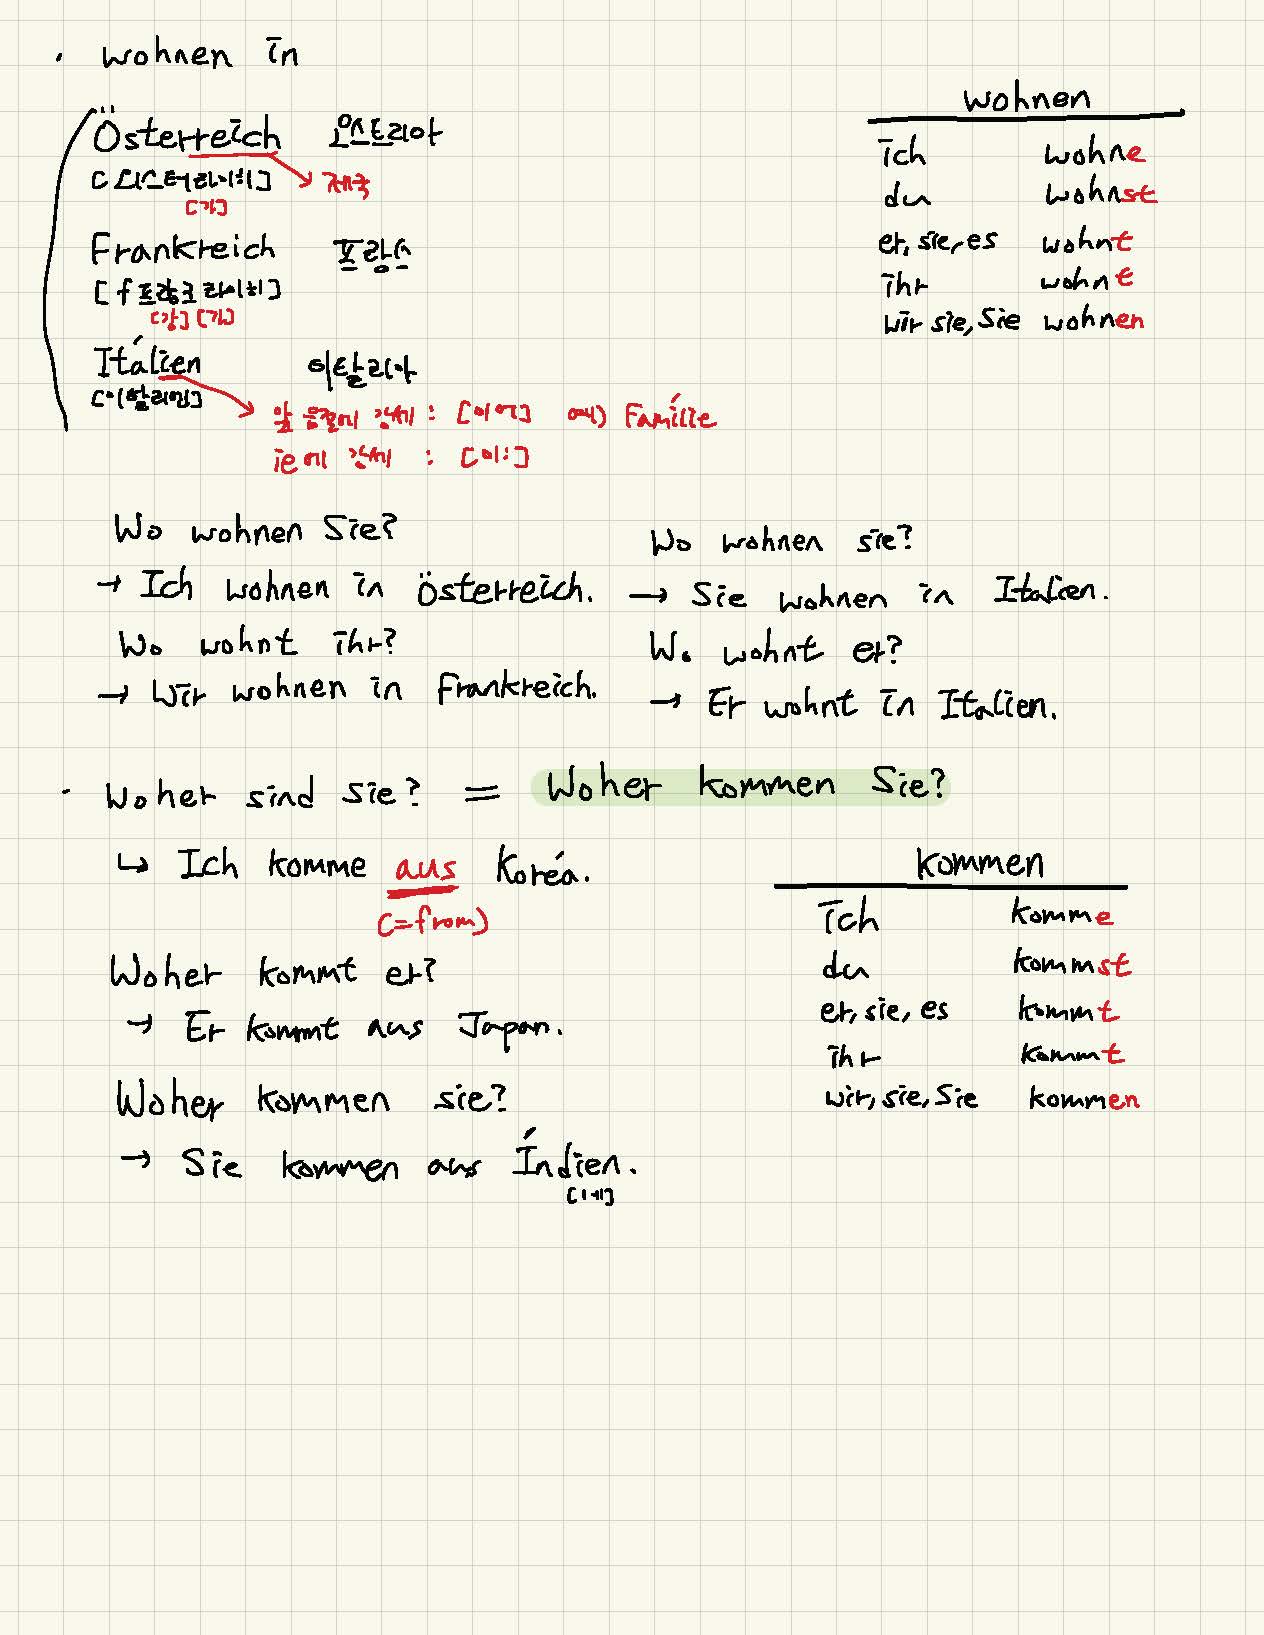 · wohnen in
Österreich 오스트리아
제국
Frankreich 프랑스
[f프랑크라이히]
Itálien 이탈리아
앞 음절에 강세 : [이에] 예) Famílie
ie에 강세 : [이:]
wohnen
ich wohne
du wohnst
er, sie, es wohnt
ihr wohne
wir sie, Sie wohnen
Wo wohnen Sie?
→ Ich wohnen in Österreich.
Wo wohnt ihr?
→ Wir wohnen in Frankreich.
Wo wohnen sie?
→ Sie wohnen in Italien.
Wo wohnt er?
→ Er wohnt in Italien.
· Woher sind sie? = Woher kommen Sie?
↳ Ich komme aus Koréa.
(=from)
Woher kommt er?
→ Er kommt aus Japan.
Woher kommen sie?
→ Sie kommen aus Índien.
kommen
ich komme
du kommst
er, sie, es kommt
ihr kommt
wir, sie, Sie kommen